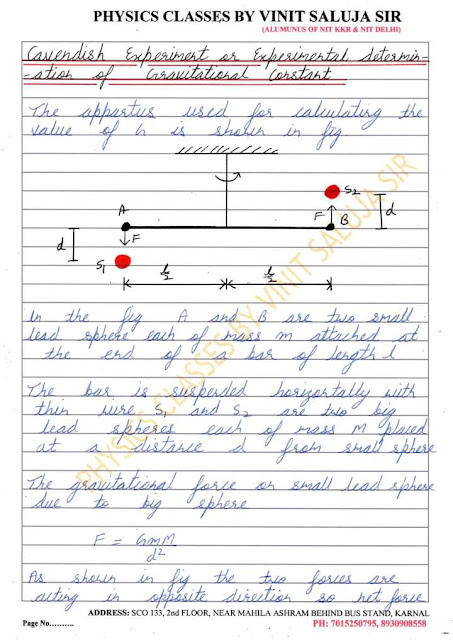 PHYSICS CLASSES BY VINIT SALUJA SIR
(ALUMUNUS OF NIT KKR & NIT DELHI)
Cavendish Experiment or Experimental determin-
-ation of Gravitational Constant
The appartus used for calculating the
value of G is shown in fig
S2
A
F
B
d
d
F
S1
l/2
l/2
In the fig A and B are two small
lead sphere each of mass m attached at
the end of a bar of length l
The bar is suspended horizontally with
thin wire S1 and S2 are two big
lead spheres each of mass M placed
at a distance d from small sphere
The gravitational force on small lead sphere
due to big sphere
F = GmM
d2
As shown in fig the two forces are
acting in opposite direction so net force
PHYSICS CLASSES BY VINIT SALUJA SIR
ADDRESS: SCO 133, 2nd FLOOR, NEAR MAHILA ASHRAM BEHIND BUS STAND, KARNAL
Page No..........
PH: 7015250795, 8930908558